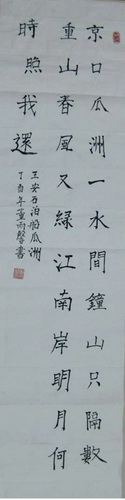 京口瓜洲一水間鐘山只隔數
重山春風又綠江南岸明月何
時照我還
王安石泊船瓜洲
丁酉年董雨馨書